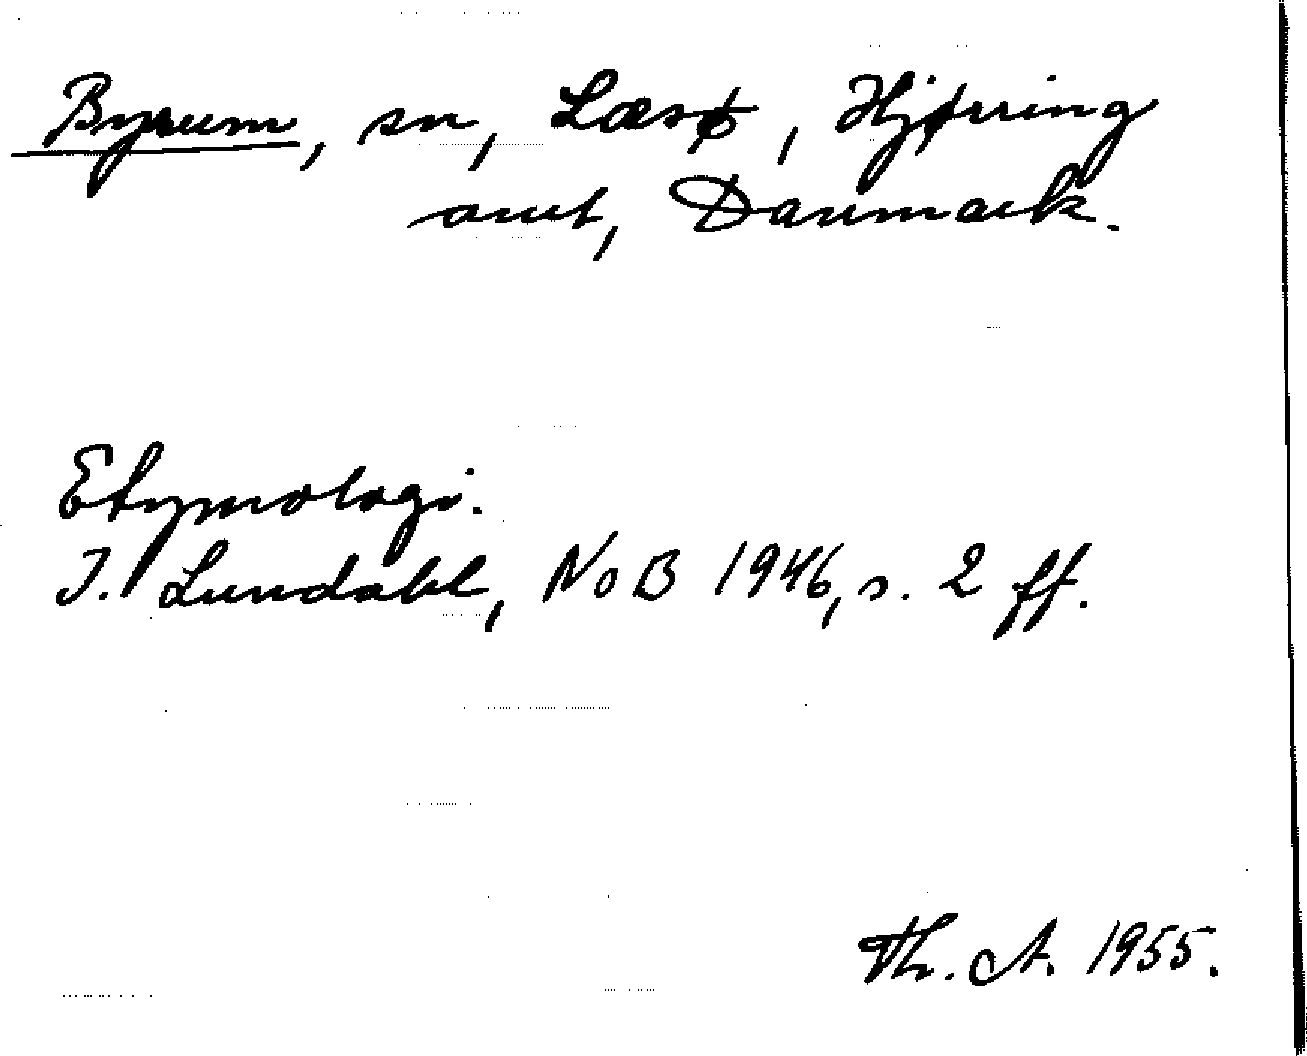 Byrum, sn, Læsø, Hjørring
amt, Danmark.
Etymologi.
I. Lundahl, NoB 1946, s. 2 ff.
Th. A. 1955.